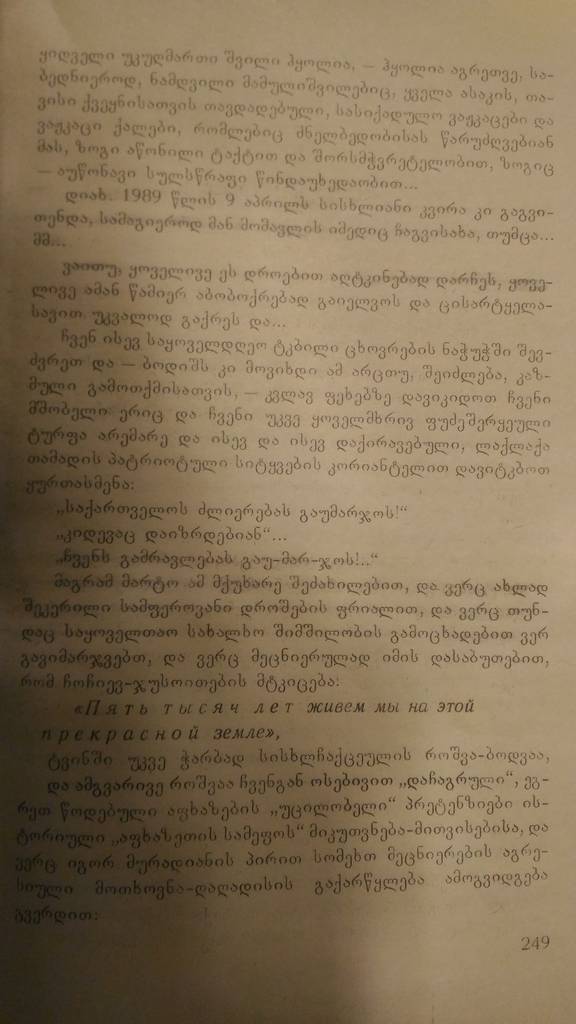 ყიღველი უკუღმართი შვილი ჰყოლია, — ჰყოლია აგრეთვე, სა-
ბედნიეროდ, ნამდვილი მამულიშვილებიც, ყველა ასაკის, თა-
ვისი ქვეყნისათვის თავდადებული, სასიქადულო ვაჟკაცები და
ვაჟკაცი ქალები, რომლებიც ძნელბედობისას წარუძღვებიან
მას, ზოგი აწონილი ტაქტით და შორსმჭვრეტელობით, ზოგიც
— აუწონავი სულსწრაფი წინდაუხედაობით...
დიახ. 1989 წლის 9 აპრილს სისხლიანი კვირა კი გაგვი-
თენდა, სამაგიეროდ მან მომავლის იმედიც ჩაგვისახა, თუმცა...
მმ...
ვაითუ, ყოველივე ეს დროებით აღტკინებად დარჩეს, ყოვე-
ლივე ამან წამიერ აბობოქრებად გაიელვოს და ცისარტყელა-
სავით უკვალოდ გაქრეს და...
ჩვენ ისევ საყოველდღეო ტკბილი ცხოვრების ნაჭუჭში შევ-
ძვრეთ და — ბოდიშს კი მოვიხდი ამ არცთუ, შეიძლება, კაზ-
მული გამოთქმისათვის, — კვლავ ფეხებზე დავიკიდოთ ჩვენი
მშობელი ერიც და ჩვენი უკვე ყოველმხრივ ფუძეშერყეული
ტურფა არემარე და ისევ და ისევ დაქირავებული, ლაქლაქა
თამადის პატრიოტული სიტყვების კორიანტელით დავიტკბოთ
ყურთასმენა:
„საქართველოს ძლიერებას გაუმარჯოს!“
„კიდევაც დაიზრდებიან“...
„ჩვენს გამრავლებას გაუ-მარ-ჯოს!..“
მაგრამ მარტო ამ მქუხარე შეძახილებით, და ვერც ახლად
შეკერილი სამფეროვანი დროშების ფრიალით, და ვერც თუნ-
დაც საყოველთაო სახალხო შიმშილობის გამოცხადებით ვერ
გავიმარჯვებთ, და ვერც მეცნიერულად იმის დასაბუთებით,
რომ ჩოჩიევ-ჯუსოითების მტკიცება:
«Пять тысяч лет живем мы на этой
прекрасной земле»,
ტვინში უკვე ჭარბად სისხლჩაქცეულის როშვა-ბოდვაა,
და ამგვარივე როშვაა ჩვენგან ოსებივით „დაჩაგრული“, ეგ-
რეთ წოდებული აფხაზების „უცილობელი“ პრეტენზიები ის-
ტორიული „აფხაზეთის სამეფოს“ მიკუთვნება-მითვისებისა, და
ვერც იგორ მურადიანის პირით სომეხთ მეცნიერების აგრე-
სიული მოთხოვნა-ღაღადისის გაქარწყლება ამოგვიდგება
გვერდით:
249